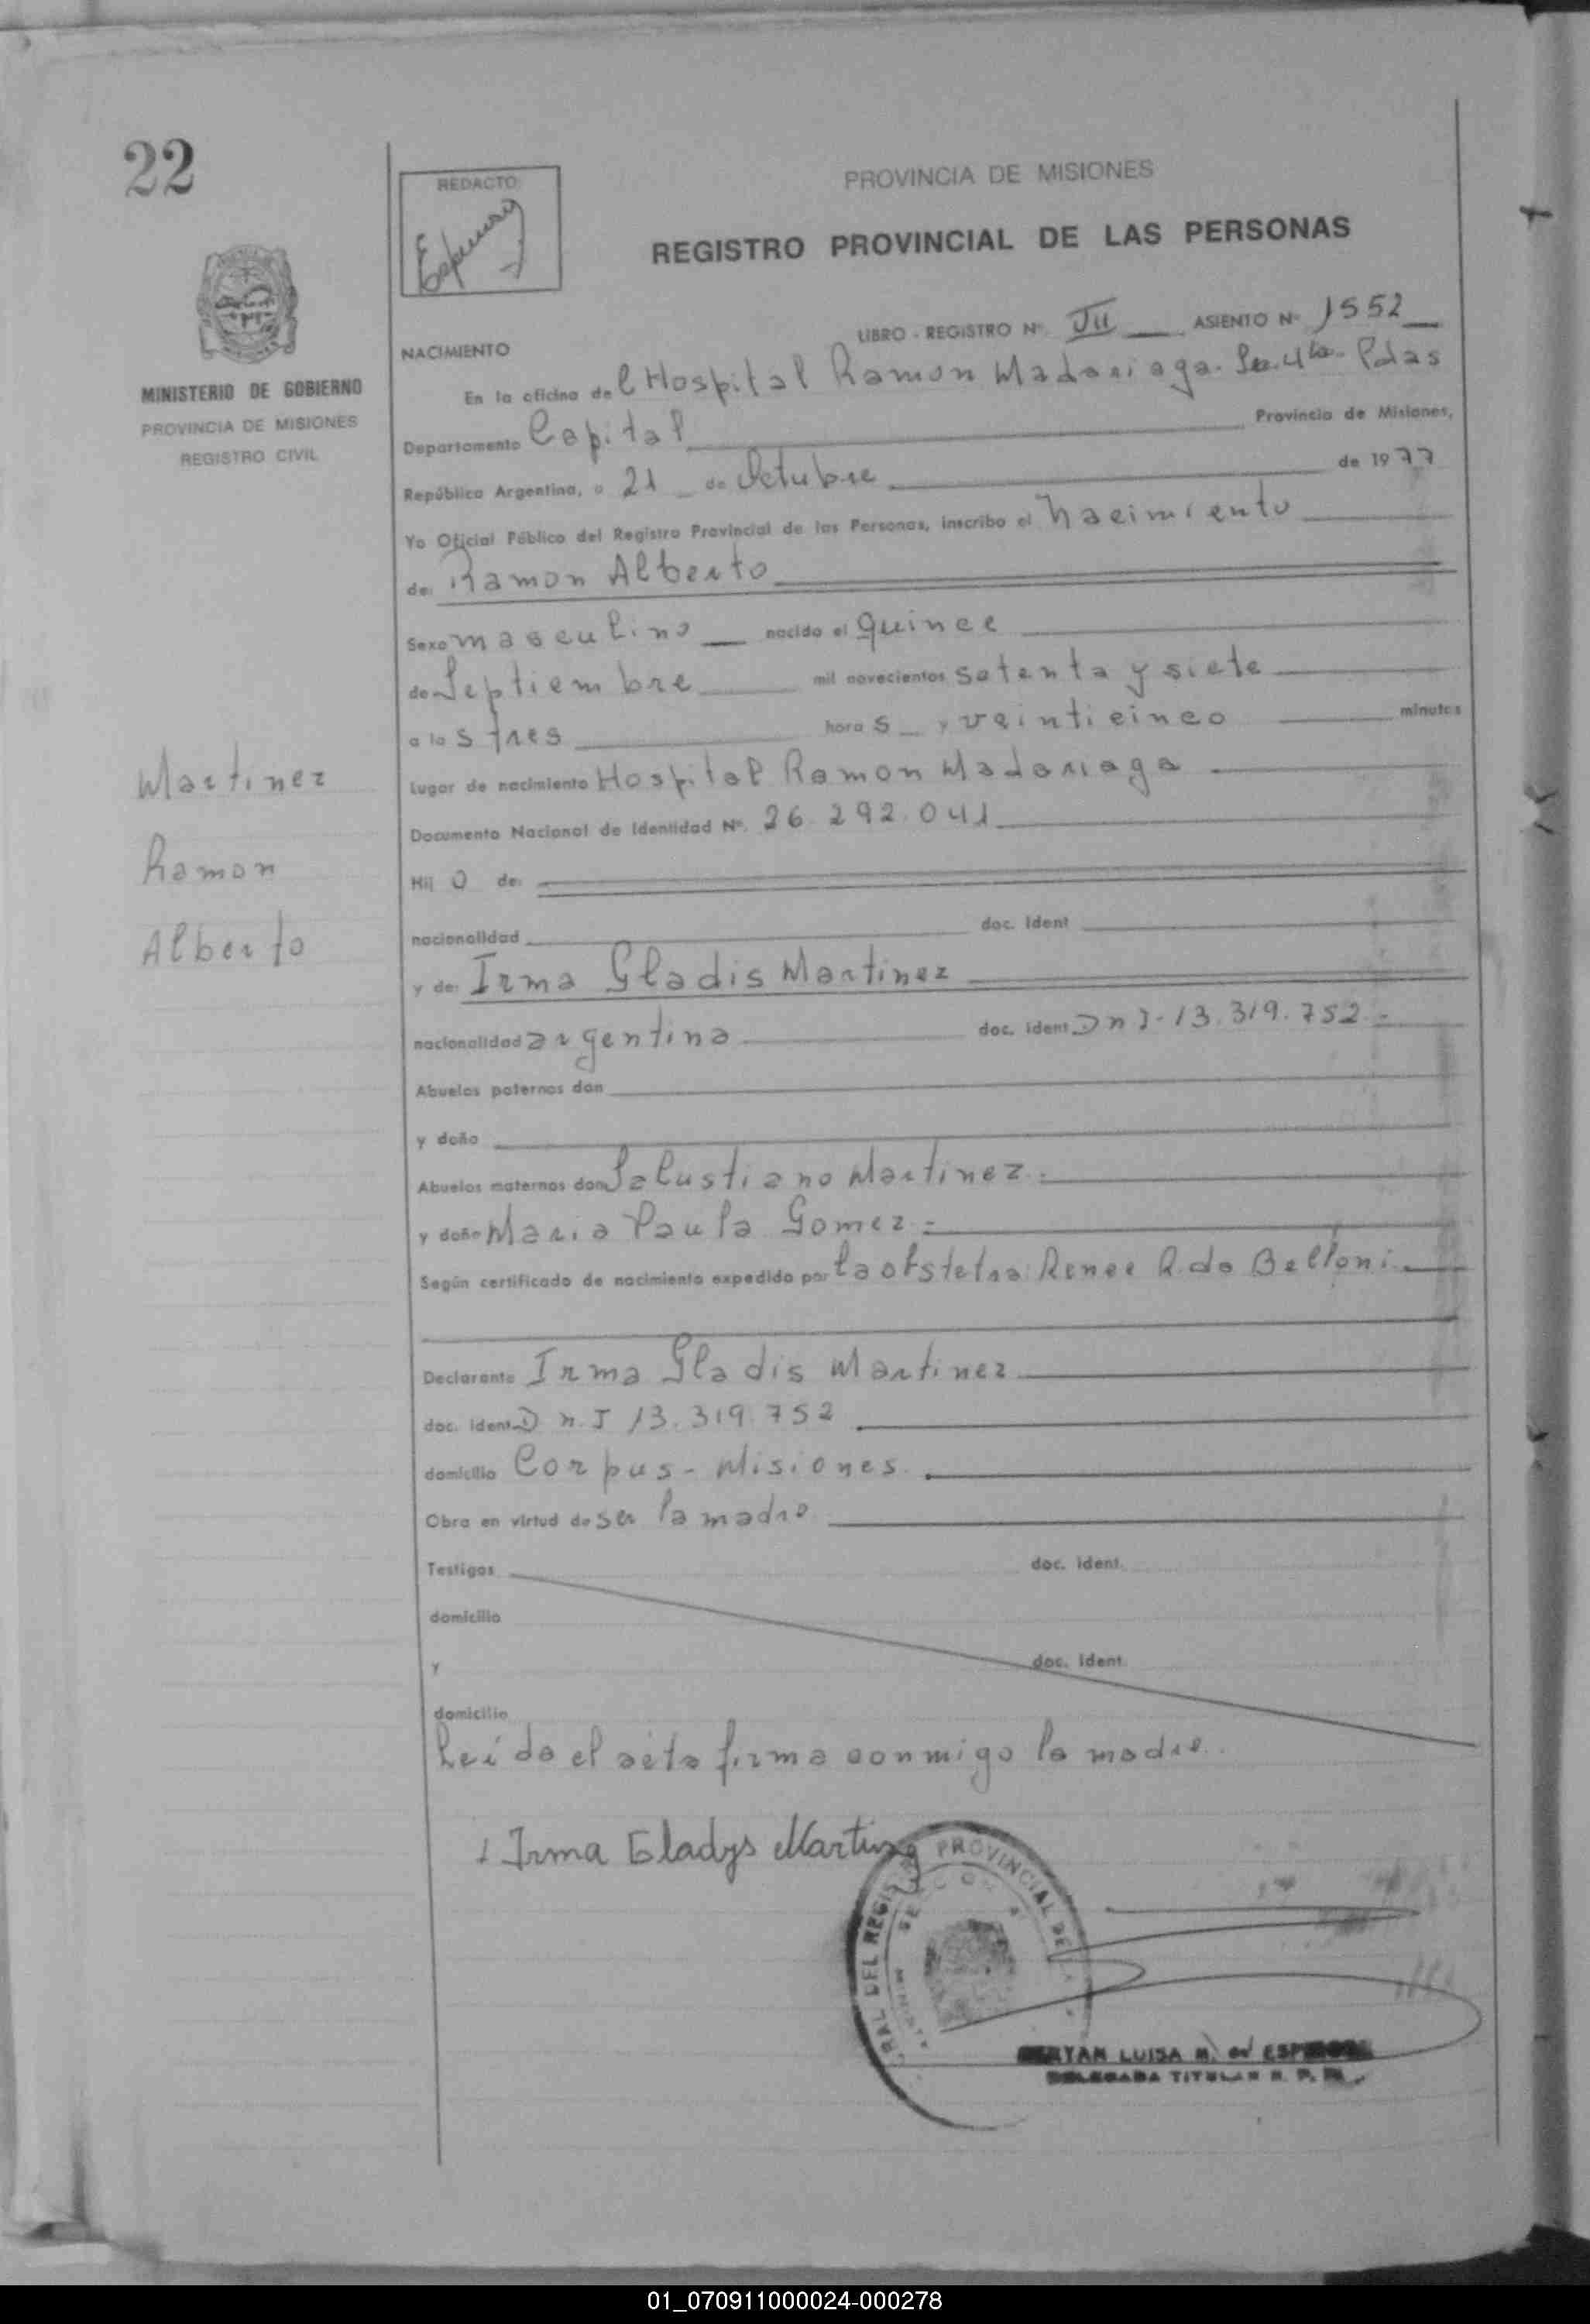 22
REDACTO
PROVINCIA DE MISIONES
REGISTRO PROVINCIAL DE LAS PERSONAS
MINISTERIO DE GOBIERNO
PROVINCIA DE MISIONES
REGISTRO CIVIL
LIBRO - REGISTRO Nº ASIENTO Nº 1552
NACIMIENTO
En la oficina del Hospital Ramon Madariaga. Sec. 4ta. Pdas
Departamento Capital Provincia de Misiones,
República Argentina, a 21 de Octubre de 1977
Yo Oficial Público del Registro Provincial de las Personas, inscribo el nacimiento
de: Ramon Alberto
Sexo masculino nacido el quince
de Septiembre mil novecientos setenta y siete
a las tres horas y veinticinco minutos
Lugar de nacimiento Hospital Ramon Madariaga
Documento Nacional de Identidad Nº. 26.292.041
Martinez
Ramon
Alberto
Hijo de:
nacionalidad doc. ident
y de: Irma Gladis Martinez
nacionalidad argentina doc. ident DNI-13.319.752.-
Abuelos paternos don
y doña
Abuelos maternos don Salustiano Martinez.-
y doña Maria Paula Gomez.-
Según certificado de nacimiento expedido por la obstetra: Renee R. de Belloni
Declarante Irma Gladis Martinez
doc. ident. D n.I 13.319.752
domicilio Corpus - Misiones.
Obra en virtud de ser la madre
Testigos doc. ident.
domicilio
y doc. ident.
domicilio
Leída el acta firma conmigo la madre.
Irma Gladys Martinez
RAL DEL REGIS PROVINCIAL DE LA
SECCION
LUISA M. de
TITULAR R. P.
01_070911000024-000278